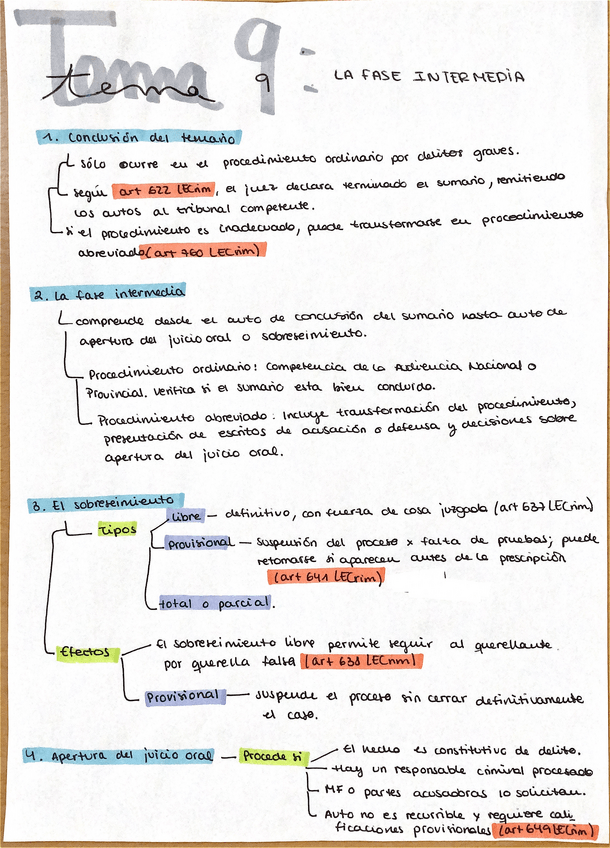 Tema 9:
tema 9 LA FASE INTERMEDIA
1. Conclusión del temario
sólo ocurre en el procedimiento ordinario por delitos graves.
según art 622 LECrim, el juez declara terminado el sumario, remitiendo
los autos al tribunal competente.
si el procedimiento es inadecuado, puede transformarse en procedimiento
abreviado (art 760 LECrim)
2. La fase intermedia
comprende desde el auto de conclusión del sumario hasta auto de
apertura del juicio oral o sobreseimiento.
Procedimiento ordinario: Competencia de la Audiencia Nacional o
Provincial. Verifica si el sumario esta bien concluido.
Procedimiento abreviado: Incluye transformación del procedimiento,
presentación de escritos de acusación o defensa y decisiones sobre
apertura del juicio oral.
3. El sobreseimiento
Tipos
libre — definitivo, con fuerza de cosa juzgada (art 637 LECrim)
Provisional — suspensión del proceso x falta de pruebas; puede
retomarse si aparecen antes de la prescripción
(art 641 LECrim)
total o parcial.
Efectos
El sobreseimiento libre permite seguir al querellante
por querella falsa (art 638 LECrim)
Provisional — suspende el proceso sin cerrar definitivamente
el caso.
4. Apertura del juicio oral — Procede si
El hecho es constitutivo de delito.
Hay un responsable criminal procesado
MF o partes acusadoras lo solicitan.
Auto no es recurrible y requiere cali
ficaciones provisionales (art 649 LECrim)